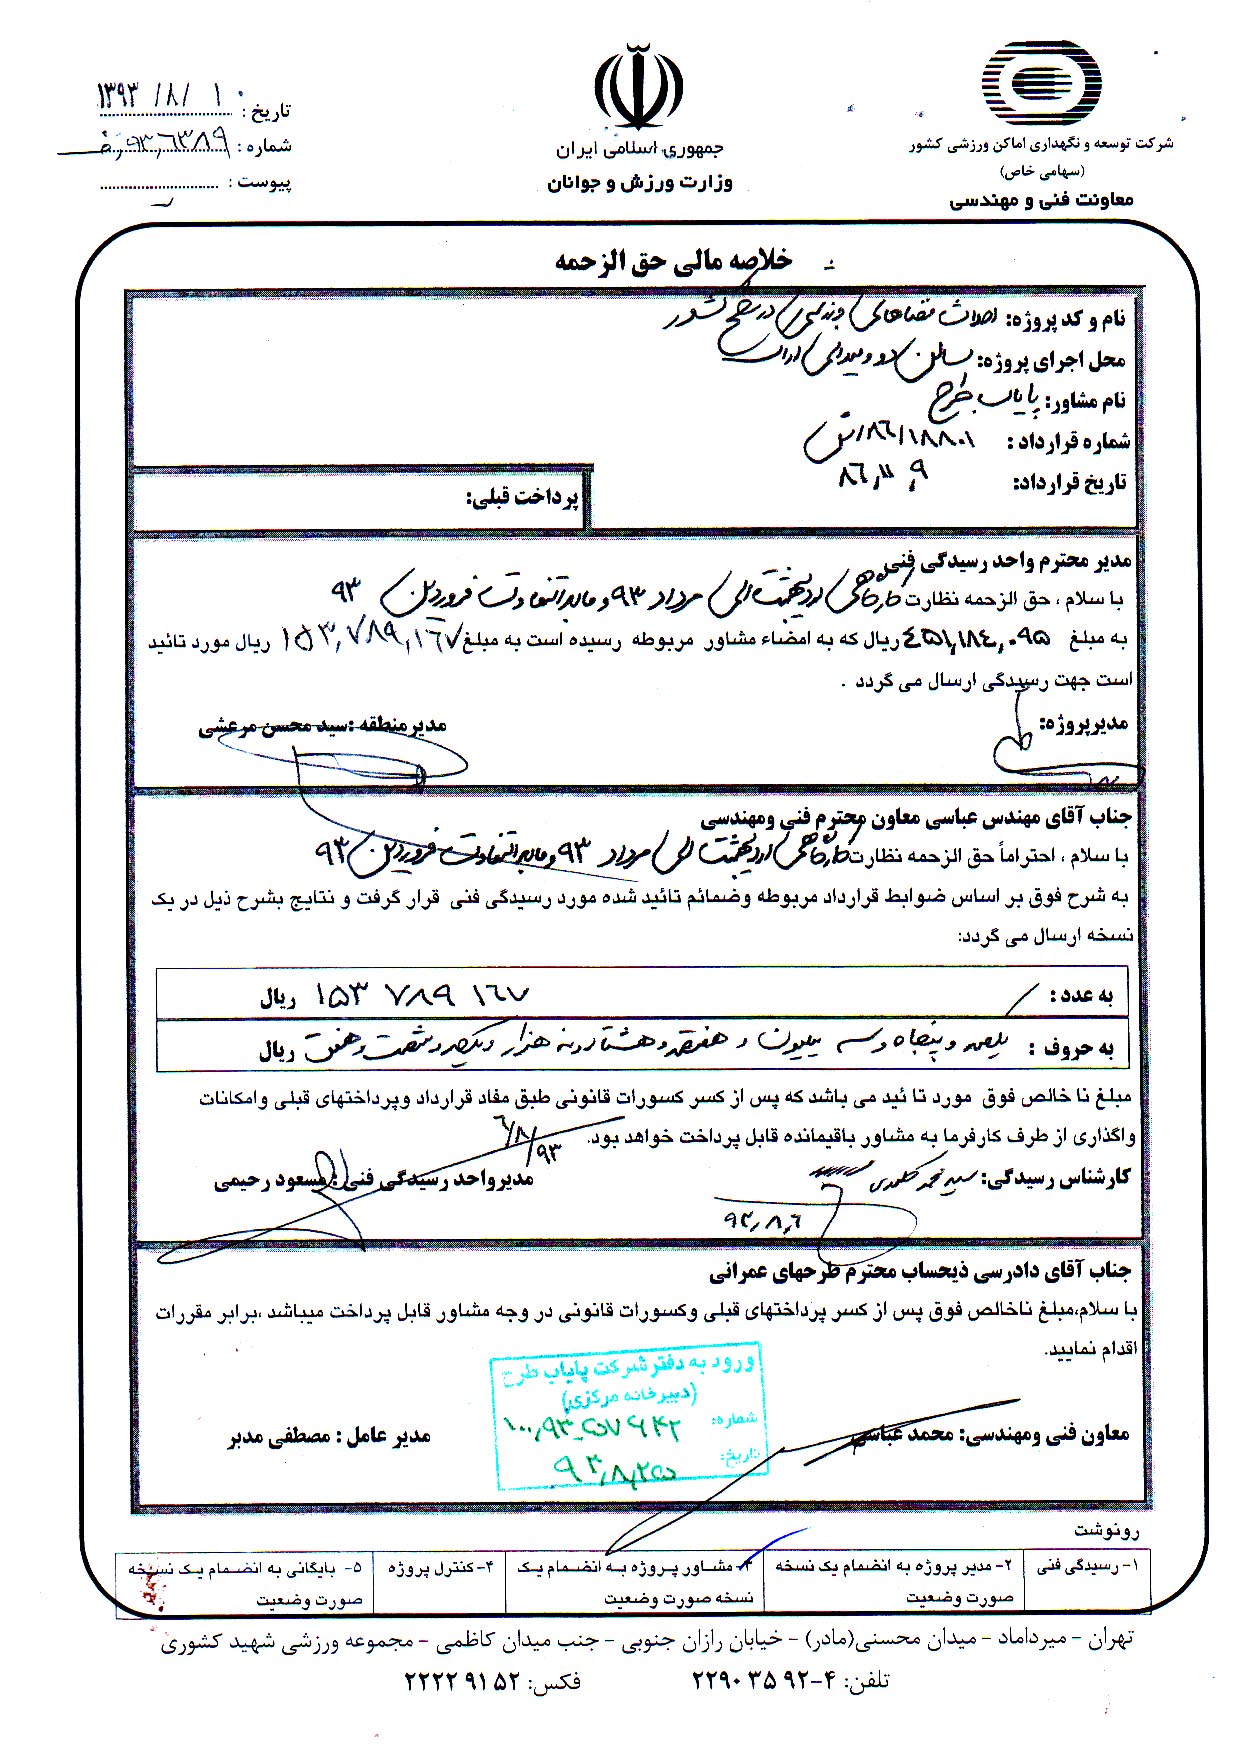 شرکت توسعه و نگهداری اماکن ورزشی کشور
(سهامی خاص)
معاونت فنی و مهندسی
جمهوری اسلامی ایران
وزارت ورزش و جوانان
تاریخ : ۱۳۹۳/۸/۱۰
شماره : ۹۳,۶۳۸۹
پیوست :
خلاصه مالی حق الزحمه
نام و کد پروژه: احداث فضاهای ورزشی در سطح کشور
محل اجرای پروژه: سالن دو و میدانی اراک
نام مشاور: پایاب طرح
شماره قرارداد :
تاریخ قرارداد: ۸۶,۱۱,۹
پرداخت قبلی:
مدیر محترم واحد رسیدگی فنی
با سلام ، حق الزحمه نظارت کارگاهی اردیبهشت الی مرداد ۹۳ و مابه التفاوت فروردین ۹۳
به مبلغ ۴۵۱,۱۸۴,۰۹۵ ریال که به امضاء مشاور مربوطه رسیده است به مبلغ ۱۵۳,۷۸۹,۱۶۷ ریال مورد تائید
است جهت رسیدگی ارسال می گردد .
مدیرپروژه:
مدیر منطقه :سید محسن مرعشی
جناب آقای مهندس عباسی معاون محترم فنی ومهندسی
با سلام ، احتراماً حق الزحمه نظارت کارگاهی اردیبهشت الی مرداد ۹۳ و مابه التفاوت فروردین ۹۳
به شرح فوق بر اساس ضوابط قرارداد مربوطه وضمائم تائید شده مورد رسیدگی فنی قرار گرفت و نتایج بشرح ذیل در یک
نسخه ارسال می گردد:
به عدد : ۱۵۳ ۷۸۹ ۱۶۷ ریال
به حروف : یکصد و پنجاه و سه میلیون و هفتصد و هشتاد و نه هزار و یکصد و شصت و هفت ریال
مبلغ نا خالص فوق مورد تا ئید می باشد که پس از کسر کسورات قانونی طبق مفاد قرارداد وپرداختهای قبلی وامکانات
واگذاری از طرف کارفرما به مشاور باقیمانده قابل پرداخت خواهد بود.
۹۳/۸/۶
کارشناس رسیدگی: سید محمد
مدیرواحد رسیدگی فنی : مسعود رحیمی
۹۳,۸,۶
جناب آقای دادرسی ذیحساب محترم طرحهای عمرانی
با سلام،مبلغ ناخالص فوق پس از کسر پرداختهای قبلی وکسورات قانونی در وجه مشاور قابل پرداخت میباشد ،برابر مقررات
اقدام نمایید.
ورود به دفتر شرکت پایاب طرح
(دبیرخانه مرکزی)
شماره:
تاریخ: ۹۳,۸,۲۵
معاون فنی ومهندسی: محمد عباسی
مدیر عامل : مصطفی مدبر
رونوشت
۱- رسیدگی فنی
۲- مدیر پروژه به انضمام یک نسخه
صورت وضعیت
۳- مشاور پروژه به انضمام یک
نسخه صورت وضعیت
۴- کنترل پروژه
۵- بایگانی به انضمام یک نسخه
صورت وضعیت
تهران - میرداماد - میدان محسنی(مادر) - خیابان رازان جنوبی - جنب میدان کاظمی - مجموعه ورزشی شهید کشوری
تلفن: ۴-۲۲۹۰۳۵۹۲ فکس: ۲۲۲۲۹۱۵۲